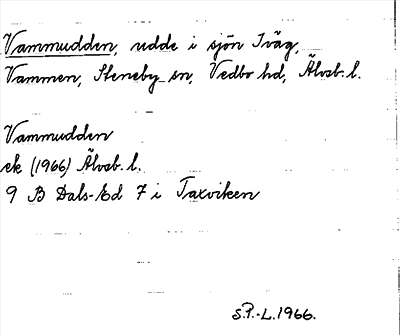 Vammudden, udde i sjön Iväg,
Vammen, Steneby sn, Vedbo hd, Älvsb. l.
Vammudden
ek (1966) Älvsb. l.
9 B Dals-Ed 7 i Taxviken
S.P.-L. 1966.